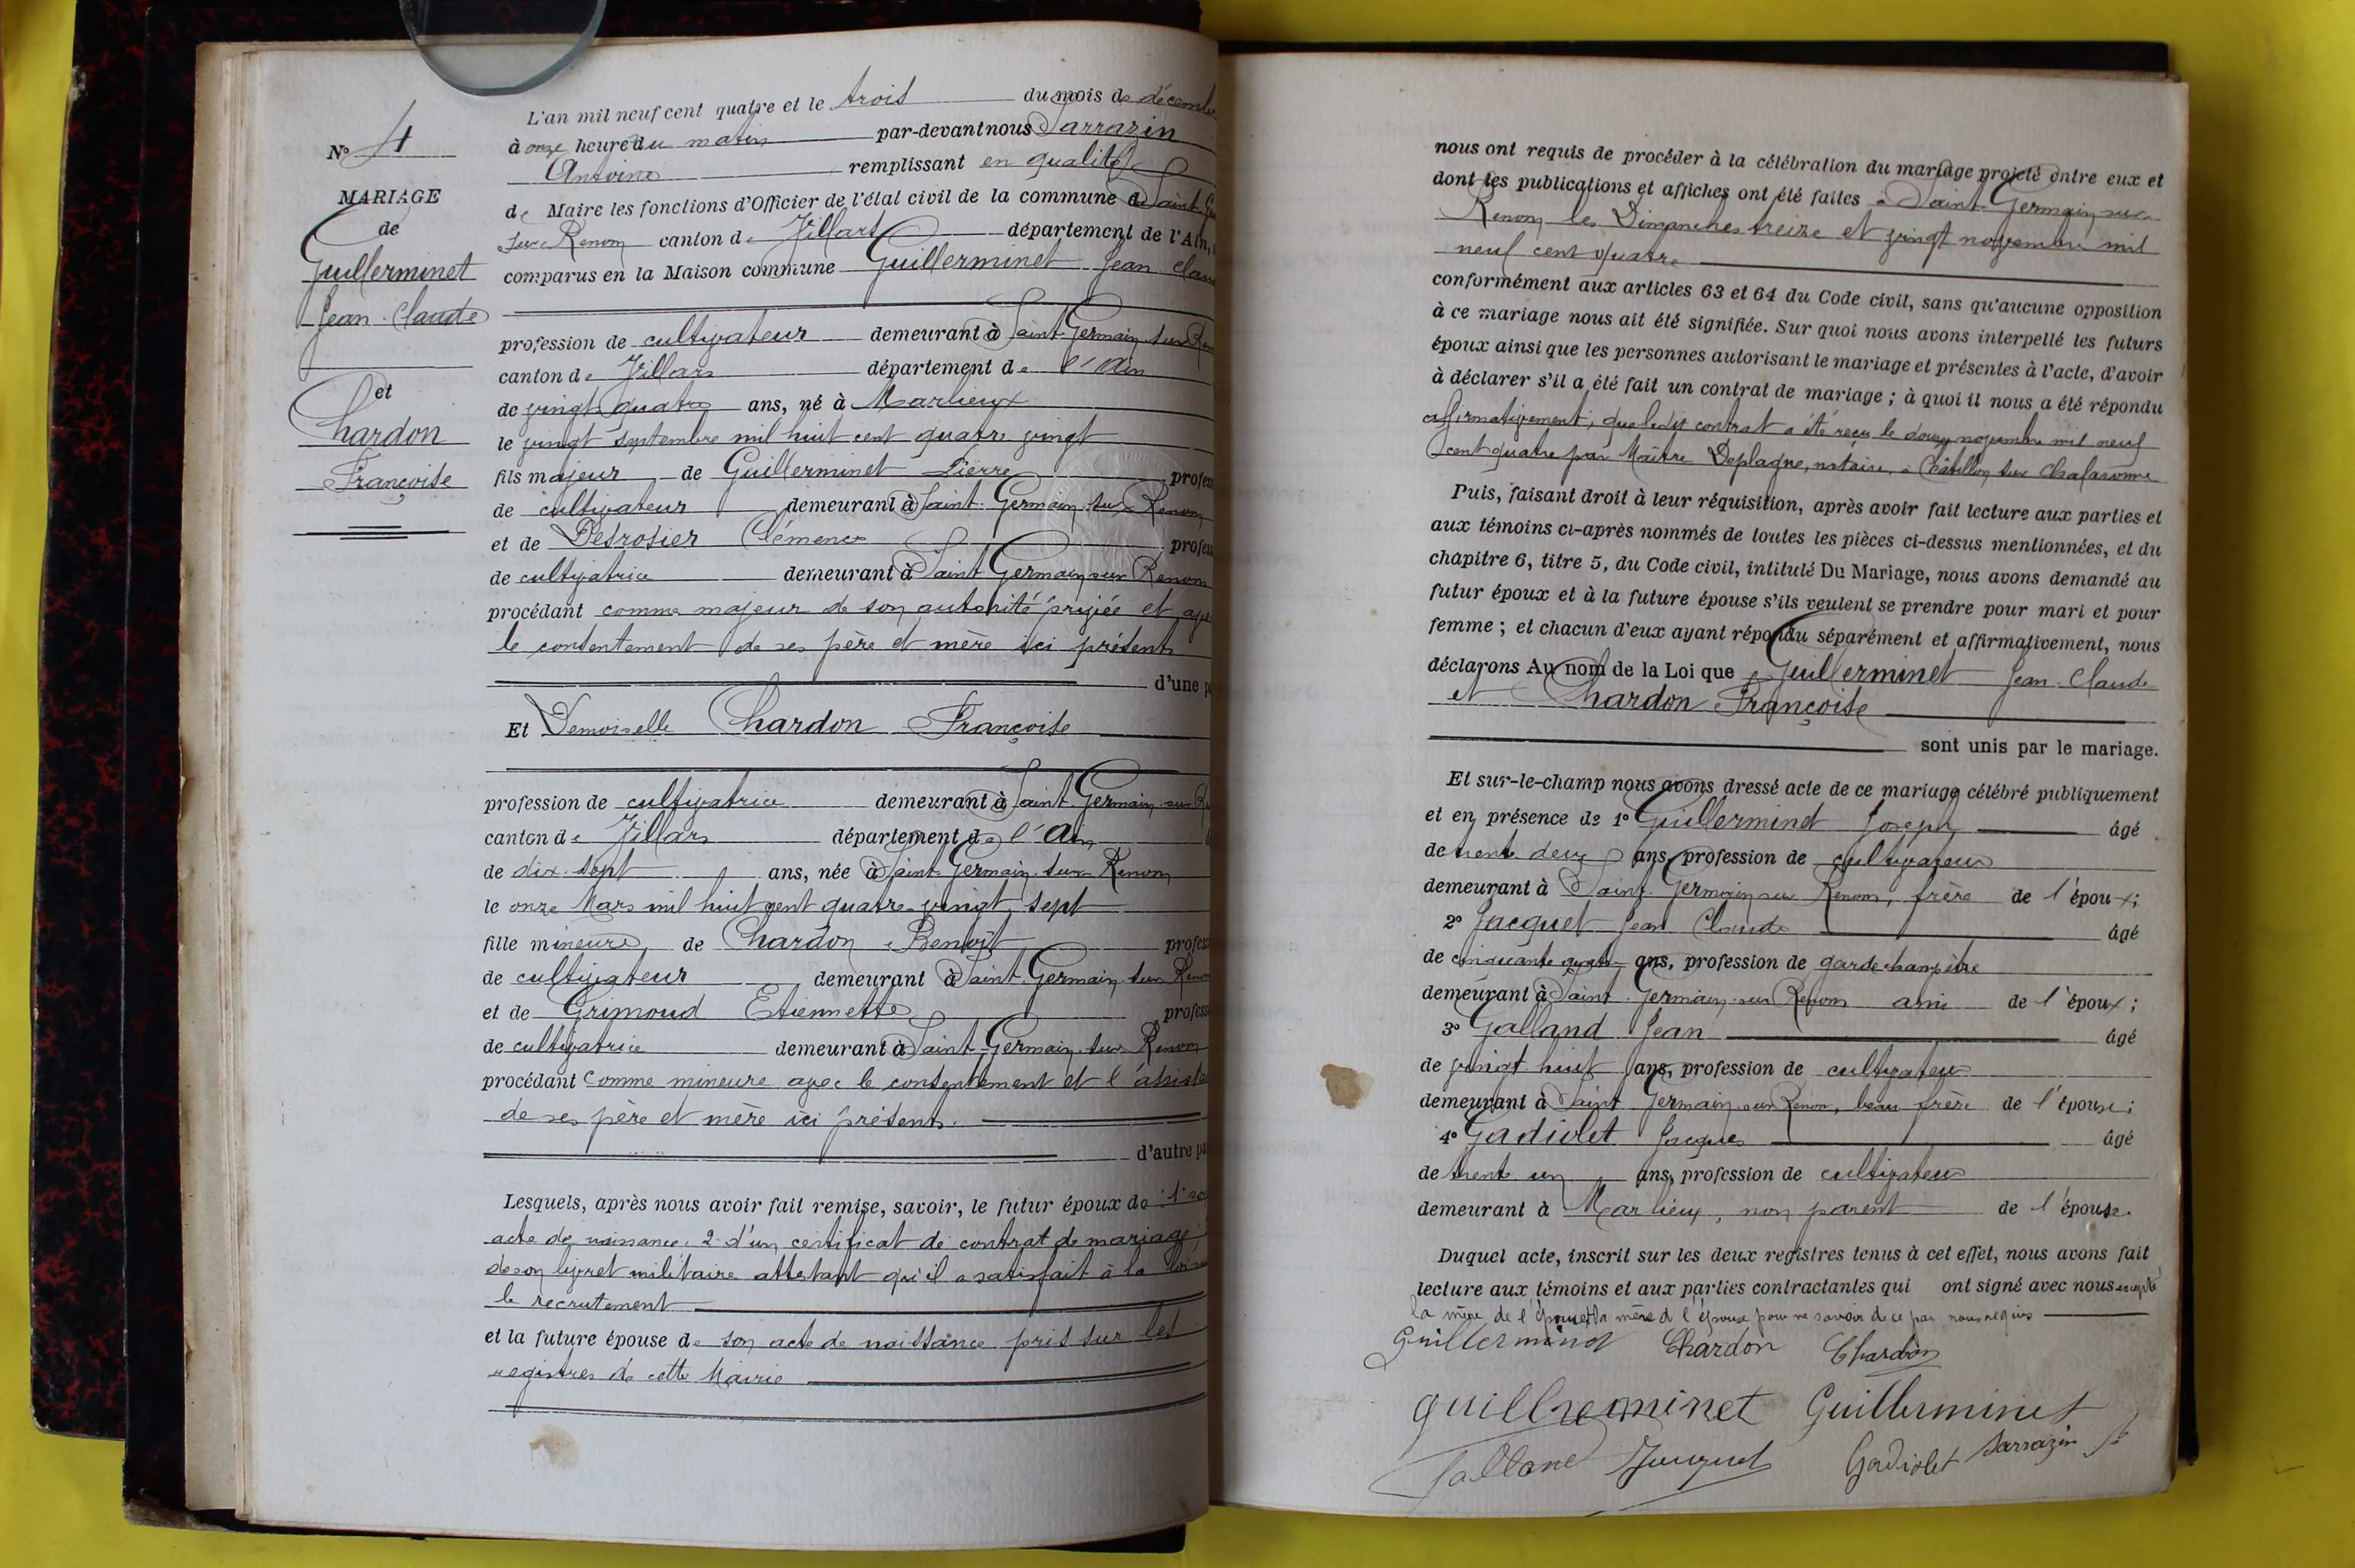 N° 4
MARIAGE
de
Guillerminet
Jean-Claude
et
Chardon
Françoise
L'an mil neuf cent quatre et le trois du mois de décembre
à onze heure du matin par-devant nous Sarrazin
Antoine remplissant en qualité
de Maire les fonctions d'Officier de l'état civil de la commune de Saint-Ge
sur Renom canton de Villars département de l'Ain,
comparus en la Maison commune Guillerminet Jean Clau
profession de cultivateur demeurant à Saint-Germain sur Ren
canton de Villars département de l'Ain
de vingt quatre ans, né à Marlieux
le vingt septembre mil huit cent quatre vingt
fils majeur de Guillerminet Pierre profess
de cultivateur demeurant à Saint-Germain-sur Renom
et de Desrosier Clémence profess
de cultivatrice demeurant à Saint Germain sur Renom
procédant comme majeur de son autorité privée et avec
le consentement de ses père et mère ici présents
d'une pa
Et Demoiselle Chardon Françoise
profession de cultivatrice demeurant à Saint-Germain-sur R
canton de Villars département de l'Ain
de dix-sept ans, née à Saint Germain-sur Renom
le onze Mars mil huit cent quatre-vingt sept
fille mineure de Chardon Benoît profess
de cultivateur demeurant à Saint-Germain-sur Renom
et de Grimoud Etiennette profess
de cultivatrice demeurant à Saint-Germain-sur Renom
procédant comme mineure avec le consentement et l'assiste
de ses père et mère ici présents.
d'autre pa
Lesquels, après nous avoir fait remise, savoir, le futur époux de 1° son
acte de naissance, 2° d'un certificat de contrat de mariage
de son livret militaire attestant qu'il a satisfait à la loi su
le recrutement
et la future épouse de son acte de naissance pris sur les
registres de cette Mairie
nous ont requis de procéder à la célébration du mariage projeté entre eux et
dont les publications et affiches ont été faites à Saint-Germain sur
Renom les Dimanches treize et vingt novembre mil
neuf cent quatre
conformément aux articles 63 et 64 du Code civil, sans qu'aucune opposition
à ce mariage nous ait été signifiée. Sur quoi nous avons interpellé les futurs
époux ainsi que les personnes autorisant le mariage et présentes à l'acte, d'avoir
à déclarer s'il a été fait un contrat de mariage ; à quoi il nous a été répondu
affirmativement, que ledit contrat a été reçu le douze novembre mil neuf
cent quatre par Maître Deplagne, notaire, à Châtillon sur Chalaronne
Puis, faisant droit à leur réquisition, après avoir fait lecture aux parties et
aux témoins ci-après nommés de toutes les pièces ci-dessus mentionnées, et du
chapitre 6, titre 5, du Code civil, intitulé Du Mariage, nous avons demandé au
futur époux et à la future épouse s'ils veulent se prendre pour mari et pour
femme ; et chacun d'eux ayant répondu séparément et affirmativement, nous
déclarons Au nom de la Loi que Guillerminet Jean-Claude
et Chardon Françoise
sont unis par le mariage.
Et sur-le-champ nous avons dressé acte de ce mariage célébré publiquement
et en présence de 1° Guillerminet Joseph âgé
de trente deux ans, profession de cultivateur
demeurant à Saint-Germain sur Renom, frère de l'époux;
2° Jacquet Jean Claude âgé
de cinquante quatre ans, profession de garde champêtre
demeurant à Saint-Germain-sur Renom ami de l'époux;
3° Galland Jean âgé
de vingt huit ans, profession de cultivateur
demeurant à Saint Germain sur Renom, beau frère de l'épouse;
4° Gadiolet Jacques âgé
de trente un ans, profession de cultivateur
demeurant à Marlieux, non parent de l'épouse.
Duquel acte, inscrit sur les deux registres tenus à cet effet, nous avons fait
lecture aux témoins et aux parties contractantes qui ont signé avec nous excepté
la mère de l'époux et la mère de l'épouse pour ne savoir de ce par nous requis
Guillerminet Chardon Chardon
guillreminet Guillerminet
Galland Jacquet Gadiolet Sarrazin